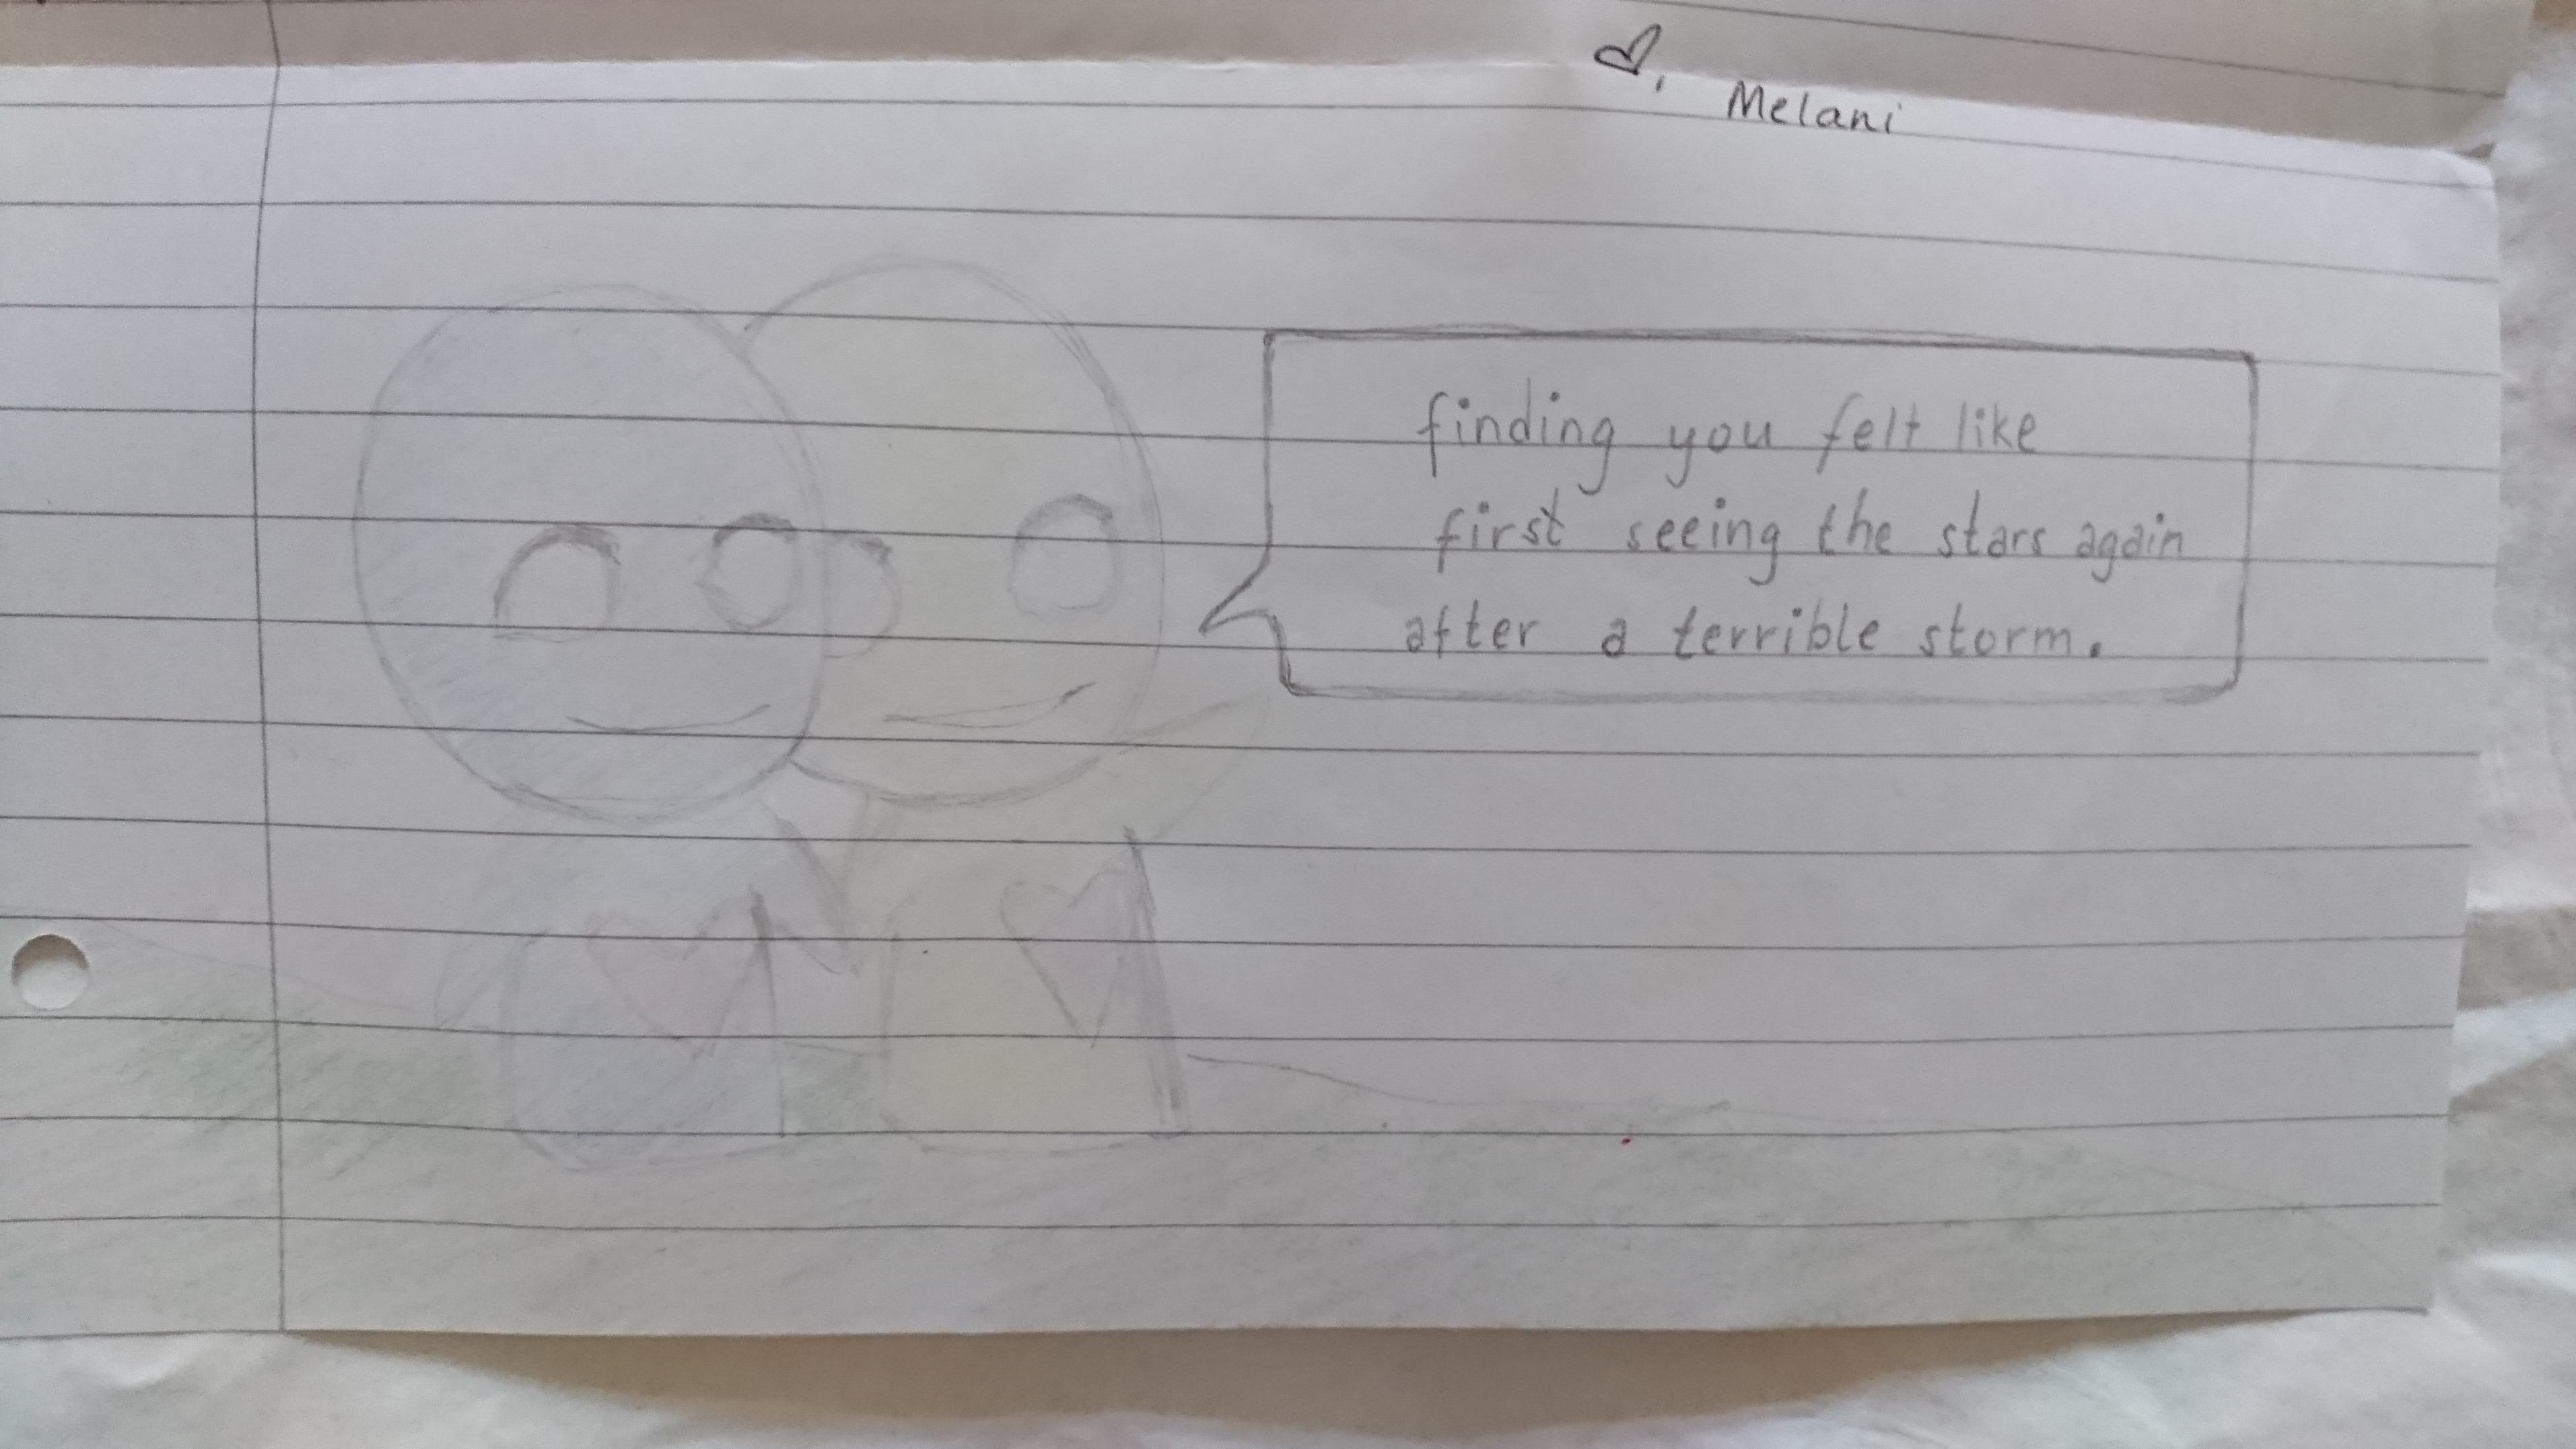 ♡, Melani
finding you felt like
first seeing the stars again
after a terrible storm.